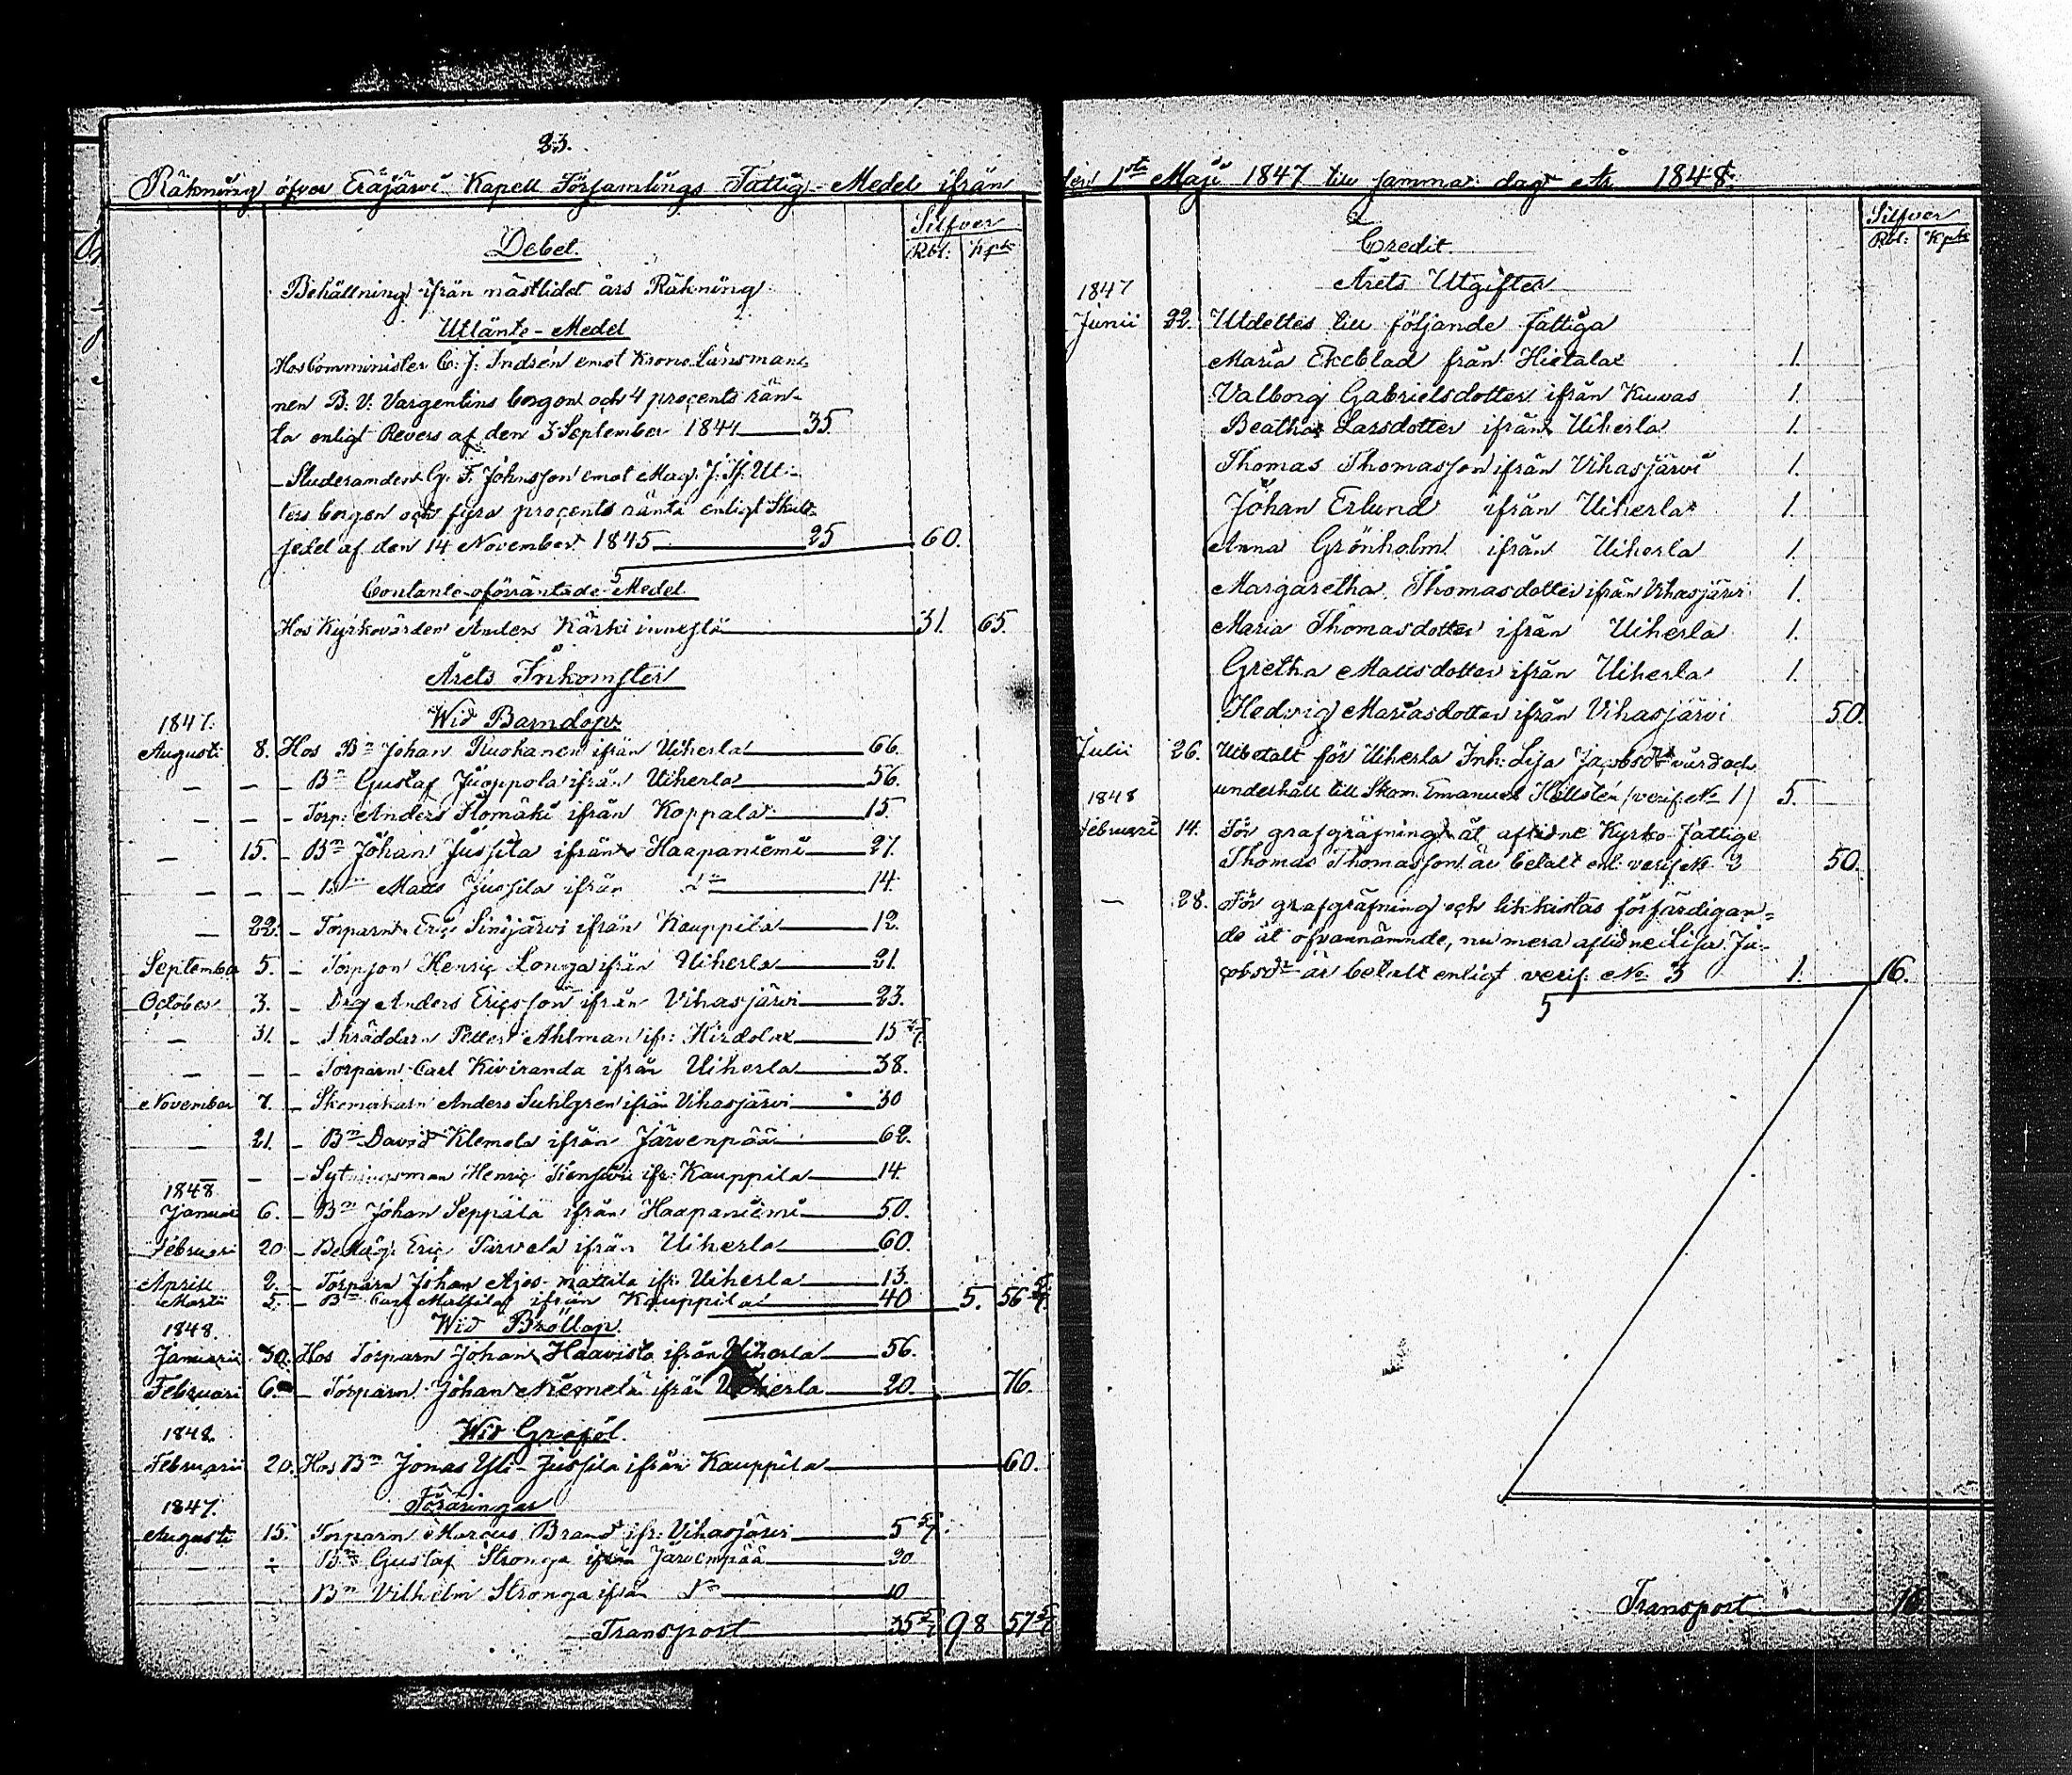 23.
Räkning öfver Eräjärvi Kapell Församlings Fattig-Medel ifrån
Silfver
Debet. Rbl: Kpk
Behållning ifrån nästlidet års Räkning
Utlänte-Medel
Hos Comminister C. J. Indrén emot Krono Länsman-
nen B. V. Vargentins borgen och 4 procents rän-
ta enligt Revers af den 3 September 1844 35.
Studeranden G. F. Johnsson emot Mag. J. H. Ut-
ters borgen och fyra procents ränta enligt Skuld-
sedel af den 14 November 1845 25 60.
Contante oförräntade Medel
Hos Kyrkovärden Anders Kärki innestå 31. 65.
Årets Inkomster
1847. Wid Barndop
Augusti 8. Hos Bn Johan Ruohanen ifrån Uiherla 66.
— — — Bn Gustaf Juoppola ifrån Uiherla 56.
— — — Torp: Anders Ilomäki ifrån Koppala 15.
— 15. — Bn Johan Jussila ifrån Haapaniemi 27.
— — — Bn Matts Jussila ifrån dn 14.
— 22. — Torparn Eric Sinijärvi ifrån Kauppila 12.
September 5. — Torpson Henric Longa ifrån Uiherla 21.
October 3. — Drg Anders Ericsson ifrån Vihasjärvi 23.
— 31. — Skräddarn Petter Ahlman ifr: Hirdolax 15 5/7
— — — Torparn Carl Kiviranda ifrån Uiherla 38.
November 7. — Skomakarn Anders Suhlgren ifrån Vihasjärvi 30
— 21. — Bn David Klemola ifrån Järvenpää 62.
— — — Sytningsman Henric ifr: Kauppila 14.
1848
Januari 6. — Bn Johan Seppälä ifrån Haapaniemi 50.
Februari 20 — Eric Tarvela ifrån Uiherla 60.
Aprill 2. — Torparn Johan Ajos-mattila ifr: Uiherla 13.
Martii 5. — Bn Carl Mattila ifrån Kauppila 40 5. 56 5/7.
1848. Wid Bröllop.
Januarii 30. Hos Torparn Johan Haavisto ifrån Uiherla 56.
Februari 6. — Torparn Johan Niemelä ifrån Uiherla 20. 76.
1848. Wid Graföl.
Februarii 20. Hos Bn Jonas Yli-Jussila ifrån Kauppila 60.
1847. Föräringar
Augusti 15. Torparn Marcus Brand ifr: Vihasjärvi 5 5/7.
— Bn Gustaf Stronga ifrån Järvenpää 20
— Bn Vilhelm Stronga ifrån dn 10
Transport 35 5/7 98 57 5/7
den 1ste Maji 1847 till samma dag År 1848.
Silfver
Credit. Rbl: Kpk
1847 Årets Utgifter
Junii 22. Utdeltes till följande fattiga
Maria Ekeblad från Hietala 1.
Valborg Gabrielsdotter ifrån Kuvas 1.
Beatha Larsdotter ifrån Uiherla 1.
Thomas Thomasson ifrån Vihasjärvi 1.
Johan Erlund ifrån Uiherla 1.
Anna Grönholm ifrån Uiherla 1.
Margaretha Thomasdotter ifrån Vihasjärvi 1.
Maria Thomasdotter ifrån Uiherla 1.
Gretha Mattsdotter ifrån Uiherla 1.
Hedvig Mariasdotter ifrån Vihasjärvi 50.
Julii 26. Utbetalt för Uiherla Inh: Lisa Jacobsdr vård och
1848 underhåll till Skom. Emanuel Hellstén (verif: No 1) 5.
Februari 14. För grafgräfning åt aflidne Kyrko fattige
Thomas Thomasson är betalt enl: verif No 2 50.
— 28. För grafgräfning och likkistas förfärdigan-
de åt ofvannämnde, numera aflidne Lisa Ja-
cobsdr är betalt enligt verif: No 3 1. 16.
Transport 16